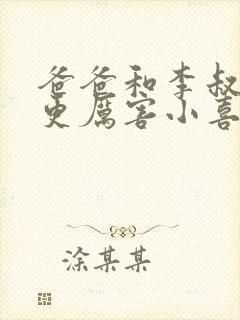 爸爸和李叔
更厲害小喜
涂某某